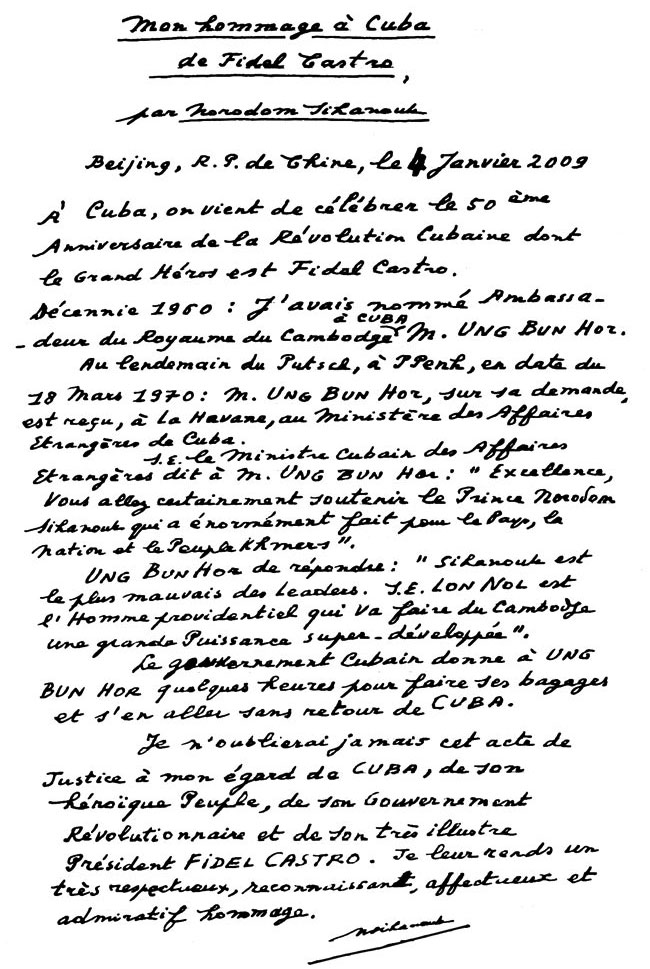 Mon hommage à Cuba
de Fidel Castro,
par Norodom Sihanouk
Beijing, R.P. de Chine, le 4 Janvier 2009
À Cuba, on vient de célébrer le 50 ème
Anniversaire de la Révolution Cubaine dont
le Grand Héros est Fidel Castro.
Décennie 1960 : J'avais nommé Ambassa-
à CUBA
-deur du Royaume du Cambodge M. UNG BUN HOR.
Au lendemain du Putsch, à PPenh, en date du
18 Mars 1970 : M. UNG BUN HOR, sur sa demande,
est reçu, à La Havane, au Ministère des Affaires
Etrangères de Cuba.
S.E. le Ministre Cubain des Affaires
Etrangères dit à M. UNG BUN HOR : " Excellence,
Vous allez certainement soutenir le Prince Norodom
Sihanouk qui a énormément fait pour le Pays, la
Nation et le Peuple Khmers ".
UNG BUN HOR de répondre : " Sihanouk est
le plus mauvais des leaders. S.E. LON NOL est
l'Homme providentiel qui va faire du Cambodge
une grande Puissance super-développée ".
Le gouvernement Cubain donne à UNG
BUN HOR quelques heures pour faire ses bagages
et s'en aller sans retour de CUBA.
Je n'oublierai jamais cet acte de
Justice à mon égard de CUBA, de son
héroïque Peuple, de son Gouvernement
Révolutionnaire et de son très illustre
Président FIDEL CASTRO. Je leur rends un
très respectueux, reconnaissant, affectueux et
admiratif hommage.
NSihanouk